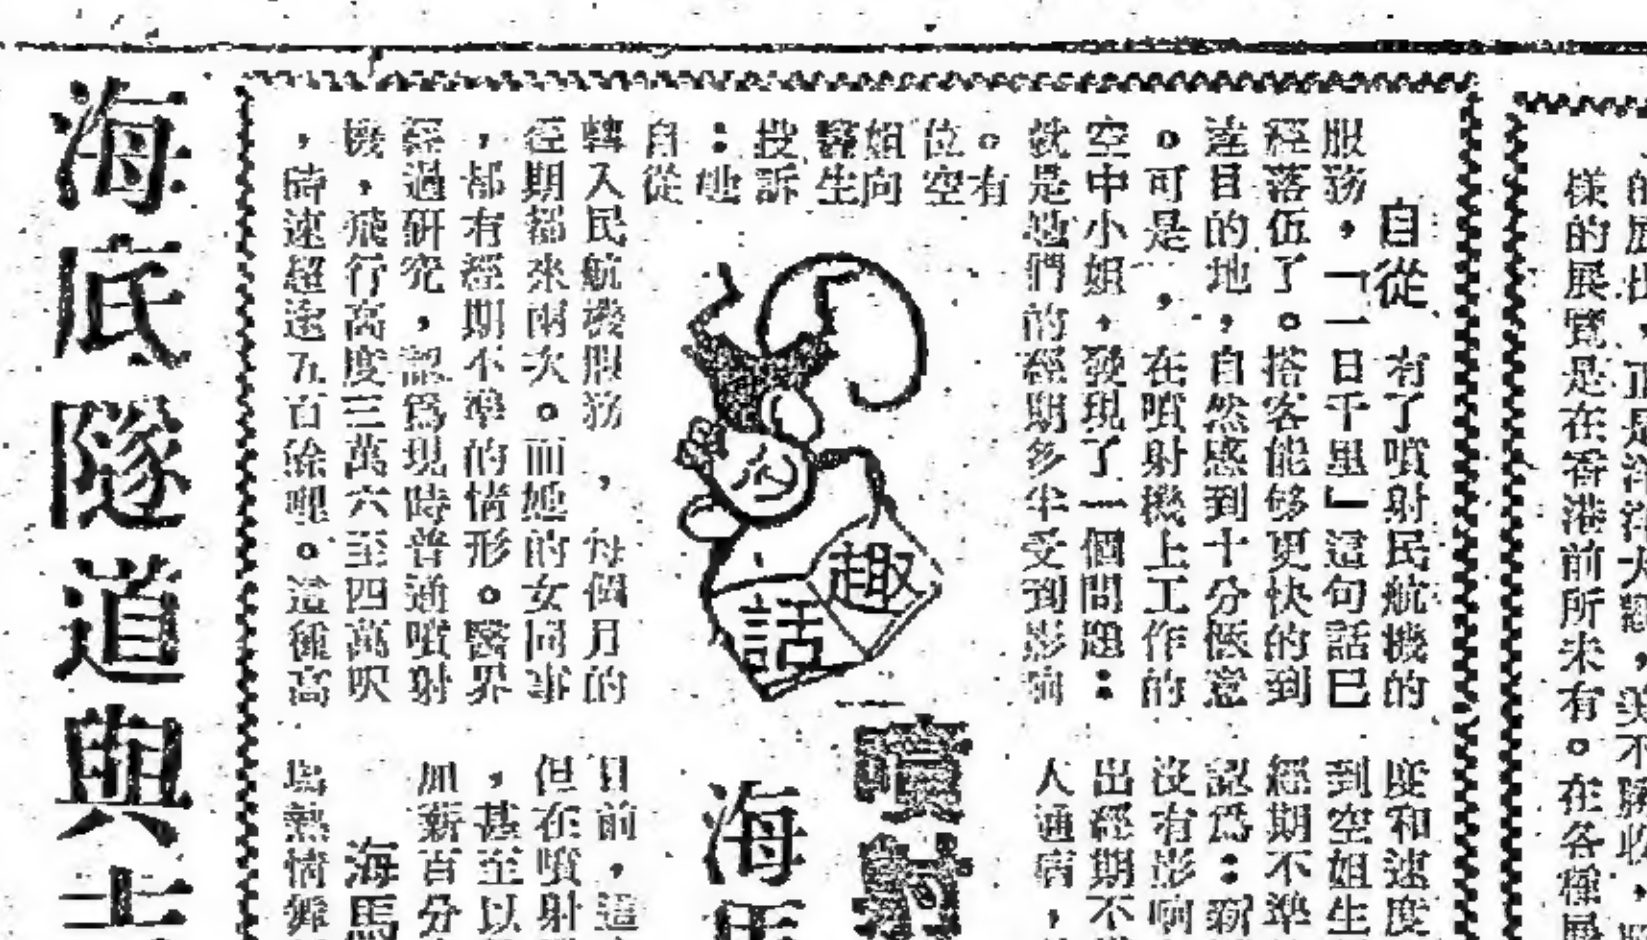 樣的展覽是在香港前所未有。在各種展
自從有了噴射民航機的
服務，「一日千里」這句話已
經落伍了。搭客能够更快的到
達目的地，自然感到十分愜意
。可是，在噴射機上工作的
空中小姐，發現了一個問題：
就是她們的經期多半受到影响
。有
位空
姐向
醫生
投訴
：她
自從
轉入民航機服務，每個月的
經期都來兩次。而她的女同事
，都有經期不準的情形。醫界
經過研究，認爲現時普通噴射
機，飛行高度三萬六至四萬呎
，時速超逾五百餘哩。這種高
趣
話
度和速度
到空姐生
經期不準
認爲：
沒有影响
出經期不
人通病，
噴射
海
目前，
但在噴射
，甚至以
加薪百分
海馬
熱情
海底隧道與